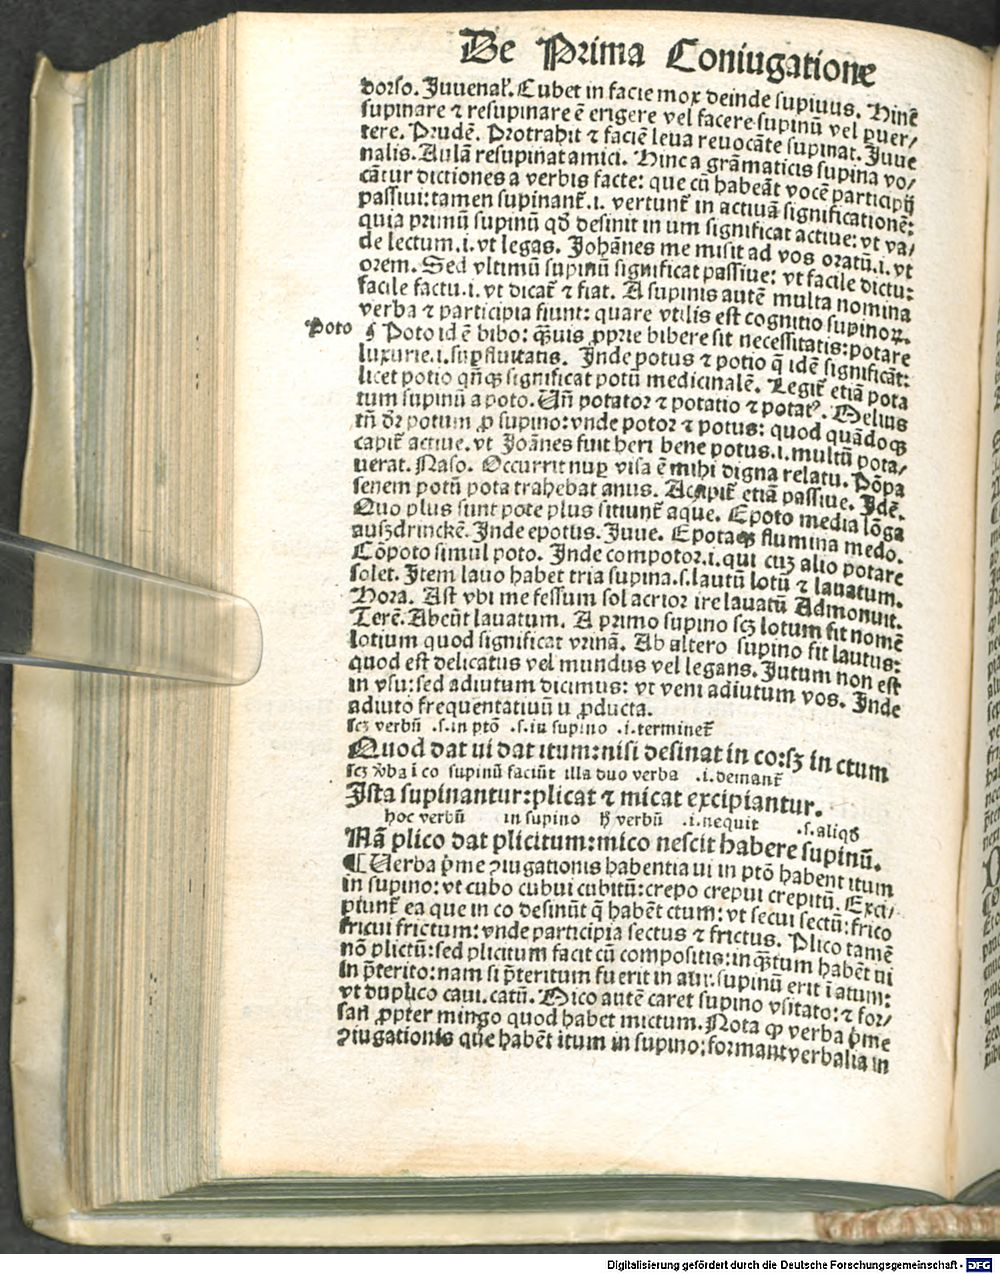 De Prima Coniugatione
dorso. Juuenał. Cubet in facie mox deinde supiuus. Hinc̄
supinare ⁊ resupinare ē erigere vel facere supinū vel ꝑuer/
tere. Prudē. Protrahit ⁊ faciē leua reuocāte supinat. Juue
nalis. Aulā resupinat amici. Hinc a grāmaticis supina vo/
cātur dictiones a verbis facte: que cū habeāt vocē participij
passiui: tamen supinant̄ .i. vertunt̄ in actiuā significationē:
quia primū supinū qđ desinit in um significat actiue: vt va/
de lectum .i. vt legas. Johānes me misit ad vos oratū .i. vt
orem. Sed vltimū supinū significat passiue: vt facile dictu:
facile factu .i. vt dicat̄ ⁊ fiat. A supinis autē multa nomina
verba ⁊ participia fiunt: quare vtilis est cognitio supinoꝝ.
Poto ¶ Poto id ē bibo: q̄uis ꝓprie bibere sit necessitatis: potare
luxurie .i. suꝑfluitatis. Inde potus ⁊ potio q̄ idē significāt:
licet potio qn̄qꝫ significat potū medicinalē. Legit̄ etiā pota
tum supinū a poto. Un̄ potator ⁊ potatio ⁊ potatꝰ. Melius
tn̄ dr̄ potum ꝓ supino: vnde potor ⁊ potus: quod quādoqꝫ
capit̄ actiue. vt Joānes fuit heri bene potus .i. multū pota/
uerat. Naso. Occurrit nuꝑ visa ē mihi digna relatu. Pōpa
senem potū pota trahebat anus. Accipit̄ etiā passiue. Idē.
Quo plus sunt pote plus sitiunt̄ aque. Epoto media lōga
auszdrinckē. Inde epotus. Juue. Epotaqꝫ flumina medo.
Cōpoto simul poto. Inde compotor .i. qui cuꝫ alio potare
solet. Item lauo habet tria supina .s. lautū lotū ⁊ lauatum.
Hora. Ast vbi me fessum sol acrior ire lauatū Admonuit.
Terē. Abeūt lauatum. A primo supino scꝫ lotum fit nomē
lotium quod significat vrinā. Ab altero supino fit lautus:
quod est delicatus vel mundus vel legans. Jutum non est
in vsu: sed adiutum dicimus: vt veni adiutum vos. Inde
adiuto frequentatiuū u ꝓducta.
scꝫ verbū .s. in ptō .s. in supino .i. terminet̄
Quod dat ui dat itum: nisi desinat in co: sꝫ in ctum
scꝫ v̓ba i co supinū faciūt illa duo verba .i. demant̄
Ista supinantur: plicat ⁊ micat excipiantur.
hoc verbū in supino ħ verbū .i. nequit .s. aliqđ
Nā plico dat plicitum: mico nescit habere supinū.
¶ Uerba p̄me ꝯiugationis habentia ui in ptō habent itum
in supino: vt cubo cubui cubitū: crepo crepui crepitū. Exci/
piunt̄ ea que in co desinūt q̄ habēt ctum: vt secui sectū: frico
fricui frictum: vnde participia sectus ⁊ frictus. Plico tamē
nō plictū: sed plicitum facit cū compositis: inq̄tum habēt ui
in p̄terito: nam si p̄teritum fuerit in aui: supinū erit ī atum:
vt duplico caui. catū. Mico autē caret supino vsitato: ⁊ for/
san ꝓpter mingo quod habet mictum. Nota ꝙ verba p̄me
ꝯiugationis que habēt itum in supino: formant verbalia in
Digitalisierung gefördert durch die Deutsche Forschungsgemeinschaft - DFG